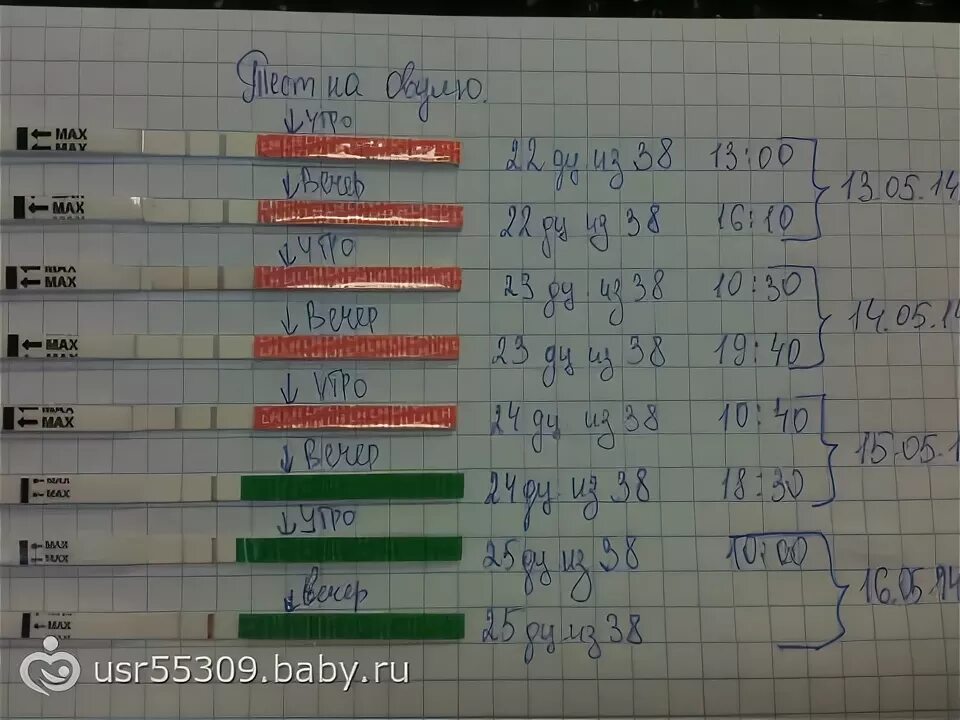 Тест на овулю.
↓ утро
← MAX
MAX
22 дц из 38 13:00
13.05.14
↓ Вечер
← MAX
22 дц из 38 16:10
↓ утро
MAX
← MAX
23 дц из 38 10:30
14.05.14
↓ Вечер
← MAX
23 дц из 38 19:40
↓ утро
MAX
← MAX
24 дц из 38 10:40
15.05.1
↓ Вечер
← MAX
← MAX
24 дц из 38 18:30
↓ утро
← MAX
← MAX
25 дц из 38 10:00
16.05.14
↓ Вечер
← MAX
25 дц из 38
usr55309.baby.ru